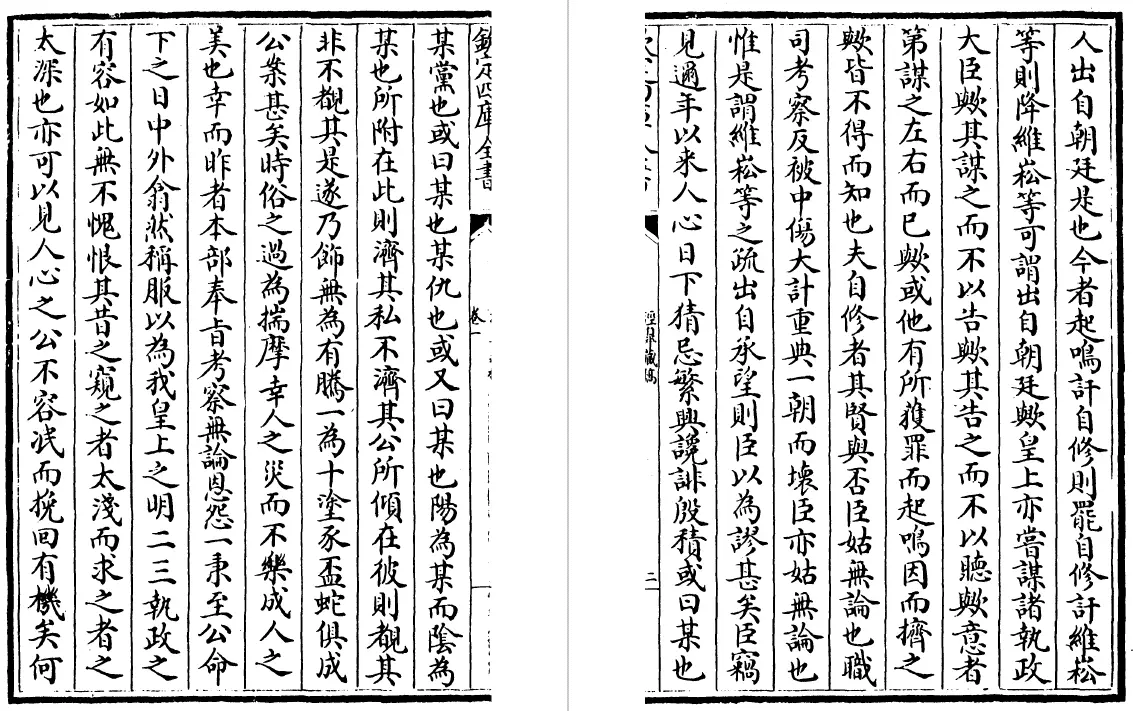 人出自朝廷是也今者起鳴訐自修則罷自修訐維崧
等則降維崧等可謂出自朝廷歟皇上亦嘗謀諸執政
大臣歟其謀之而不以告歟其告之而不以聽歟意者
第謀之左右而已歟或他有所獲罪而起鳴因而擠之
歟皆不得而知也夫自修者其賢與否臣姑無論也職
司考察反被中傷大計重典一朝而壞臣亦姑無論也
惟是謂維崧等之疏出自承望則臣以為謬甚矣臣竊
見邇年以来人心日下猜忌繁興讒誹殷積或曰某也
二
欽定四庫全書
卷一
某黨也或曰某也某仇也或又曰某也陽為某而陰為
某也所附在此則濟其私不濟其公所傾在彼則覩其
非不覩其是遂乃飾無為有騰一為十塗豕盃蛇俱成
公案甚矣時俗之過為揣摩幸人之災而不樂成人之
美也幸而昨者本部奉旨考察無論恩怨一秉至公命
下之日中外翕然稱服以為我皇上之明二三執政之
有容如此無不愧恨其昔之窺之者太淺而求之者之
太深也亦可以見人心之公不容泯而挽回有機矣何